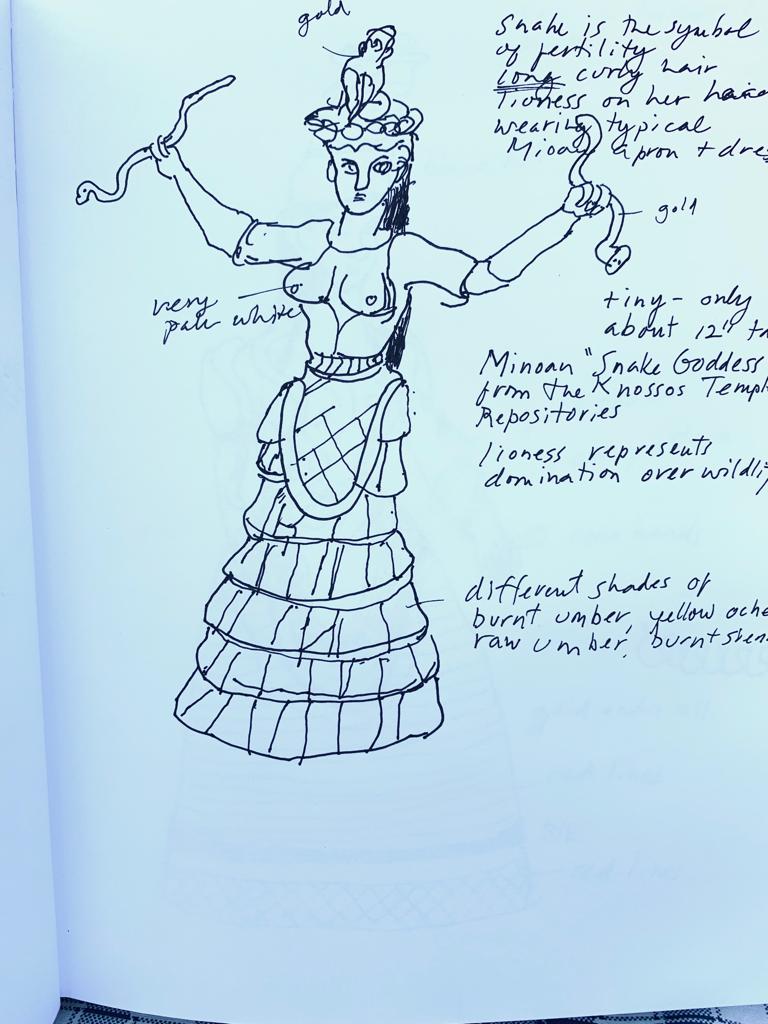 gold
Snake is the symbol
of fertility
long curly hair
lioness on her
wearing typical
Minoan apron + dres
gold
very
pale white
tiny - only
about 12" ta
Minoan "Snake Goddess
from the Knossos Templ
Repositories
lioness represents
domination over wildlif
different shades of
burnt umber, yellow oche
raw umber, burnt sien